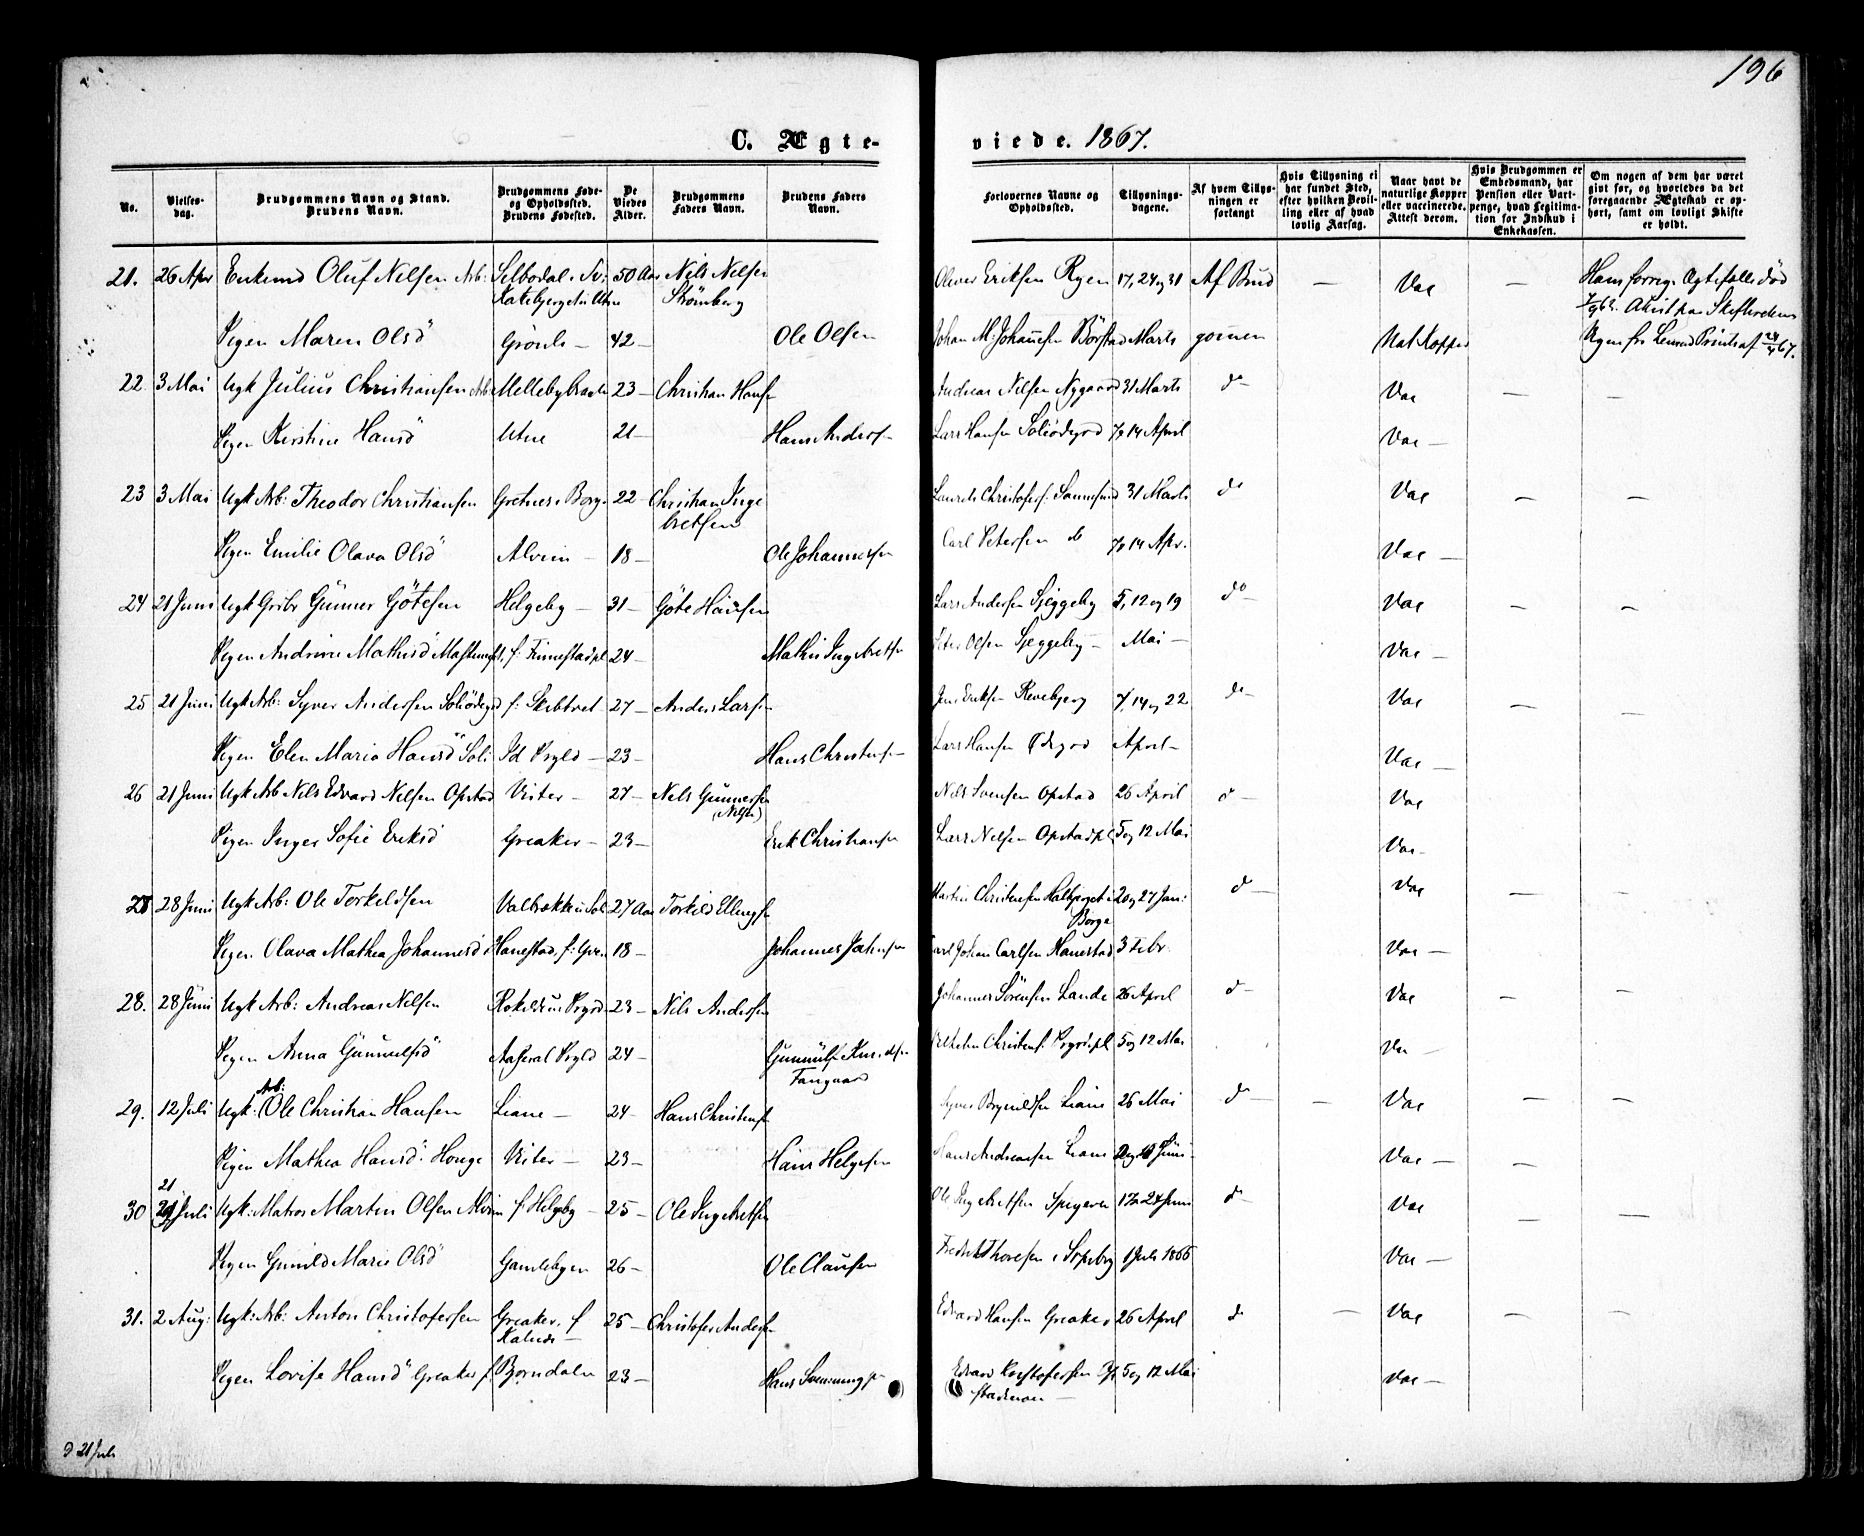 196
C. Ægte-
viede. 1867.
No.
Vielses-
dag.
Brudgommens Navn og Stand.
Brudens Navn.
Brudgommens Føde-
og Opholdssted.
Brudens Fødested.
De
Viedes
Alder.
Brudgommens
Faders Navn.
Brudens Faders
Navn.
Forlovernes Navne og
Opholdssted.
Tillysnings-
dagene.
Af hvem Tillys-
ningen er
forlangt
Hvis Tillysning ei
har fundet Sted,
efter hvilken Bevil-
ling eller af hvad
lovlig Aarsag.
Naar havt de
naturlige Kopper
eller vaccinerede.
Attest derom.
Hvis Brudgommen er
Embedsmand, har
Pension eller Vart-
penge, hvad Legitima-
tion for Indskud i
Enkekassen.
Om nogen af dem har været
givt før, og hvorledes da det
foregaaende Ægteskab er op-
hørt, samt om lovligt Skifte
er holdt.
21. 26 Apr Enkemd Oluf Nilsen Arb: 50 Aar Nils Nilsen Oliver Eriksen Ryen 17, 24 og 31 Af Brud — Vac — Hans forrige Ægtefælle død
Strömberg
Pigen Maren Olsd 42 — Ole Olsen Marts gommen Nat Kopper
22. 3 Mai Ugk Julius Christiansen Arb 23 — Christian Hansen Andreas Nilsen Nygaard 31 Marts do Vac — —
Pigen Kirstine Hansd Utne 21 — Hans Andersen Lars Hansen 7, 14 April Vac —
23 3 Mai Ugk Arb: Theodor Christiansen Gretnes i Borge 22 — Christian Inge
bretsen Laurits Christofers. Sannesund 31 Marts do Vac — —
Pigen Emilie Olava Olsd Alvim — 18 — Ole Johannesen Carl Petersen do 7, 14 Apr. Vac —
24 21 Juni Ugk Grbr Gunner Götesen Helgeby — 31 — Göte Hansen Lars Andersen Sjeggeby 5, 12 og 19 do Vac — —
Pigen Andrine Mathisd 24 — Mathis Ingebretsen Peter Olsen Sjeggeby — Mai — Vac —
25 21 Juni Ugk Arb: Syver Andersen f: Skibtvet — 27 — Anders Larsen Jens Eriksen Revebjerg 7, 14 og 22 do Vac — —
Pigen Elen Maria Hansd Soli Id Prgld — 23 — Hans Christensen — Lars Hansen April — Vac —
26 21 Juni Ugk Arb Nils Edvard Nilsen Opstad Vister — 27 — Nils Gunnersen
(Nilsen) Nils Svensen Opstad 26 April do — Vac
Pigen Inger Sofie Eriksd Greaker — 23 — Erik Christiansen Lars Nilsen Opstadpl 5 og 12 Mai Vac —
27 28 Juni Ugk Arb: Ole Torkildsen 27 Aar Torkild Ellingsen Martin Christensen 20 og 27 Jan: do — Vac — —
Borge
Pigen Olava Mathea Johannesd Hanestad, 18 — Johannes Karl Johan Carlsen Hanestad 3 Febr. Vac —
28. 28 Juni Ugk Arb: Andreas Nilsen 23 — Nils Andersen Johannes Sörensen Lande 26 April do — Vac — —
Pigen Anna Gunnulfsd Prgld 24 — Gunnulf Knudsen
Fangaard 5 og 12 Mai Vac —
29. 12 Juli Ugk: Arb: Ole Christian Hansen Liane — 24 — Hans Christensen Syver Brynildsen Liane 26 Mai do — — Vac — —
Pigen Mathea Hansd: Hauge Vister — 23 — Hans Helgesen Hans Andreassen Liane Juni — Vac — —
30 21 Juli Ugk: Matros Martin Olsen Alvim f: Helgeby — 25 — Ole Ingebretsen Ole Ingebretsen 17, 24 Juni do — Vac — —
Pigen Gunild Marie Olsd Gamlebyen 26 — Ole Clausen Fredrik Thoresen i Sopeberg 1 Juli 1866 Vac —
31. 2 Aug: Ugk: Arb: Anton Christofersen Greaker, f
Kalnes — 25 — Christofer Andersen Edvard Hansen Greaker 26 April do — Vac — —
Pigen Lovise Hansd Greaker f. Bjorndalen 23 — Hans Edvard 5 og 12 Mai Vac —
D 21 Juli